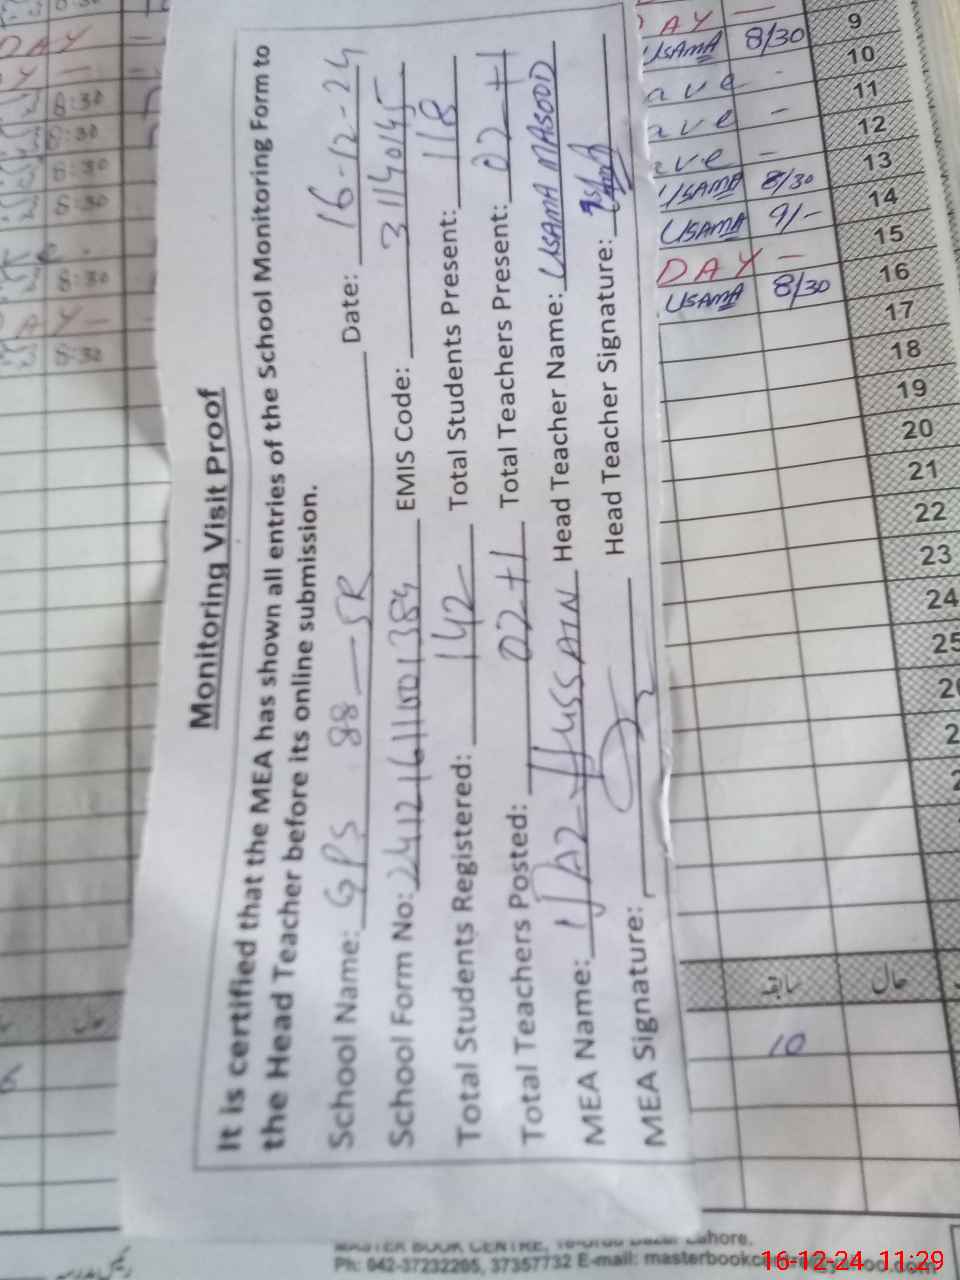 Monitoring Visit Proof
It is certified that the MEA has shown all entries of the School Monitoring Form to
the Head Teacher before its online submission.
School Name: GPS 88-5R Date: 16-12-24
School Form No: 24121611001384 EMIS Code: 31140145
Total Students Registered: 142 Total Students Present: 118
Total Teachers Posted: 02+1 Total Teachers Present: 02+1
MEA Name: IJAZ HUSSAIN Head Teacher Name: USAMA MASOOD
MEA Signature: Head Teacher Signature:
DAY - 9
USAMA 8/30 10
ave - 11
ave - 12
ave - 13
USAMA 8/30 14
USAMA 9/- 15
DAY - 16
USAMA 8/30 17
18
19
20
21
22
23
24
25
سابقہ حال
10
DAY
8:30
8:30
8:30
8:30
8:30
8:30
MASTER BOOK CENTRE, Lahore.
Ph: 042-37232205, 37357732 E-mail:
16-12-24 11:29